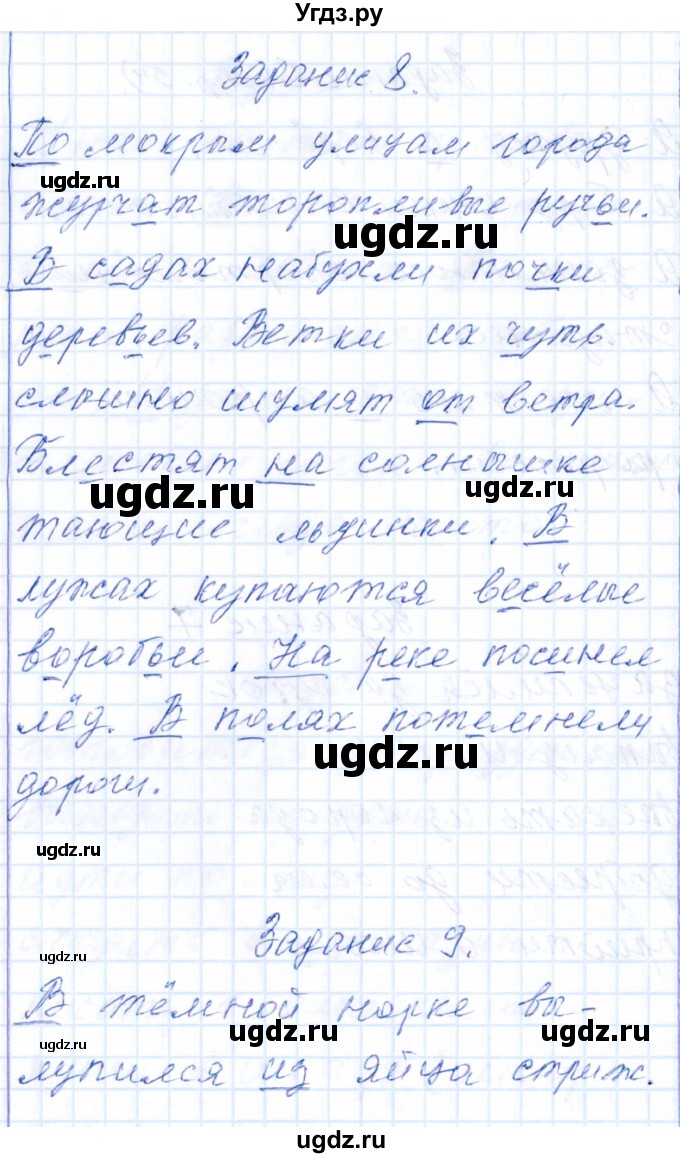 Угдз.ру
Задание 8.
По мокрым улицам города
ugdz.ru
журчат торопливые ручьи.
ugdz.ru
В садах набухли почки
деревьев. Ветки их чуть
слышно шумят от ветра.
Блестят на солнышке
ugdz.ru ugdz.ru
тающие льдинки. В
лужах купаются весёлые
воробьи. На реке посинел
лёд. В полях потемнели
ugdz.ru
дороги.
ugdz.ru
Задание 9.
ugdz.ru
В тёмной норке вы-
ugdz.ru ugdz.ru ugdz.ru
лупился из яйца стриж.
ugdz.ru